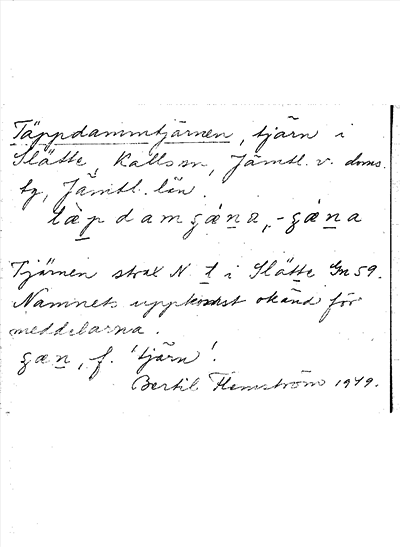 Täppdammtjärnen, tjärn i
Slätte, Kalls sn, Jämtl. v. doms.
tg, Jämtl. län.
tàpdamʂæ̀na, -ʂæ̀na
Tjärnen strax N t i Slätte Gn 59.
Namnets uppkomst okänd för
meddelarna.
ʂæn, f. 'tjärn'.
Bertil Flemström 1949.